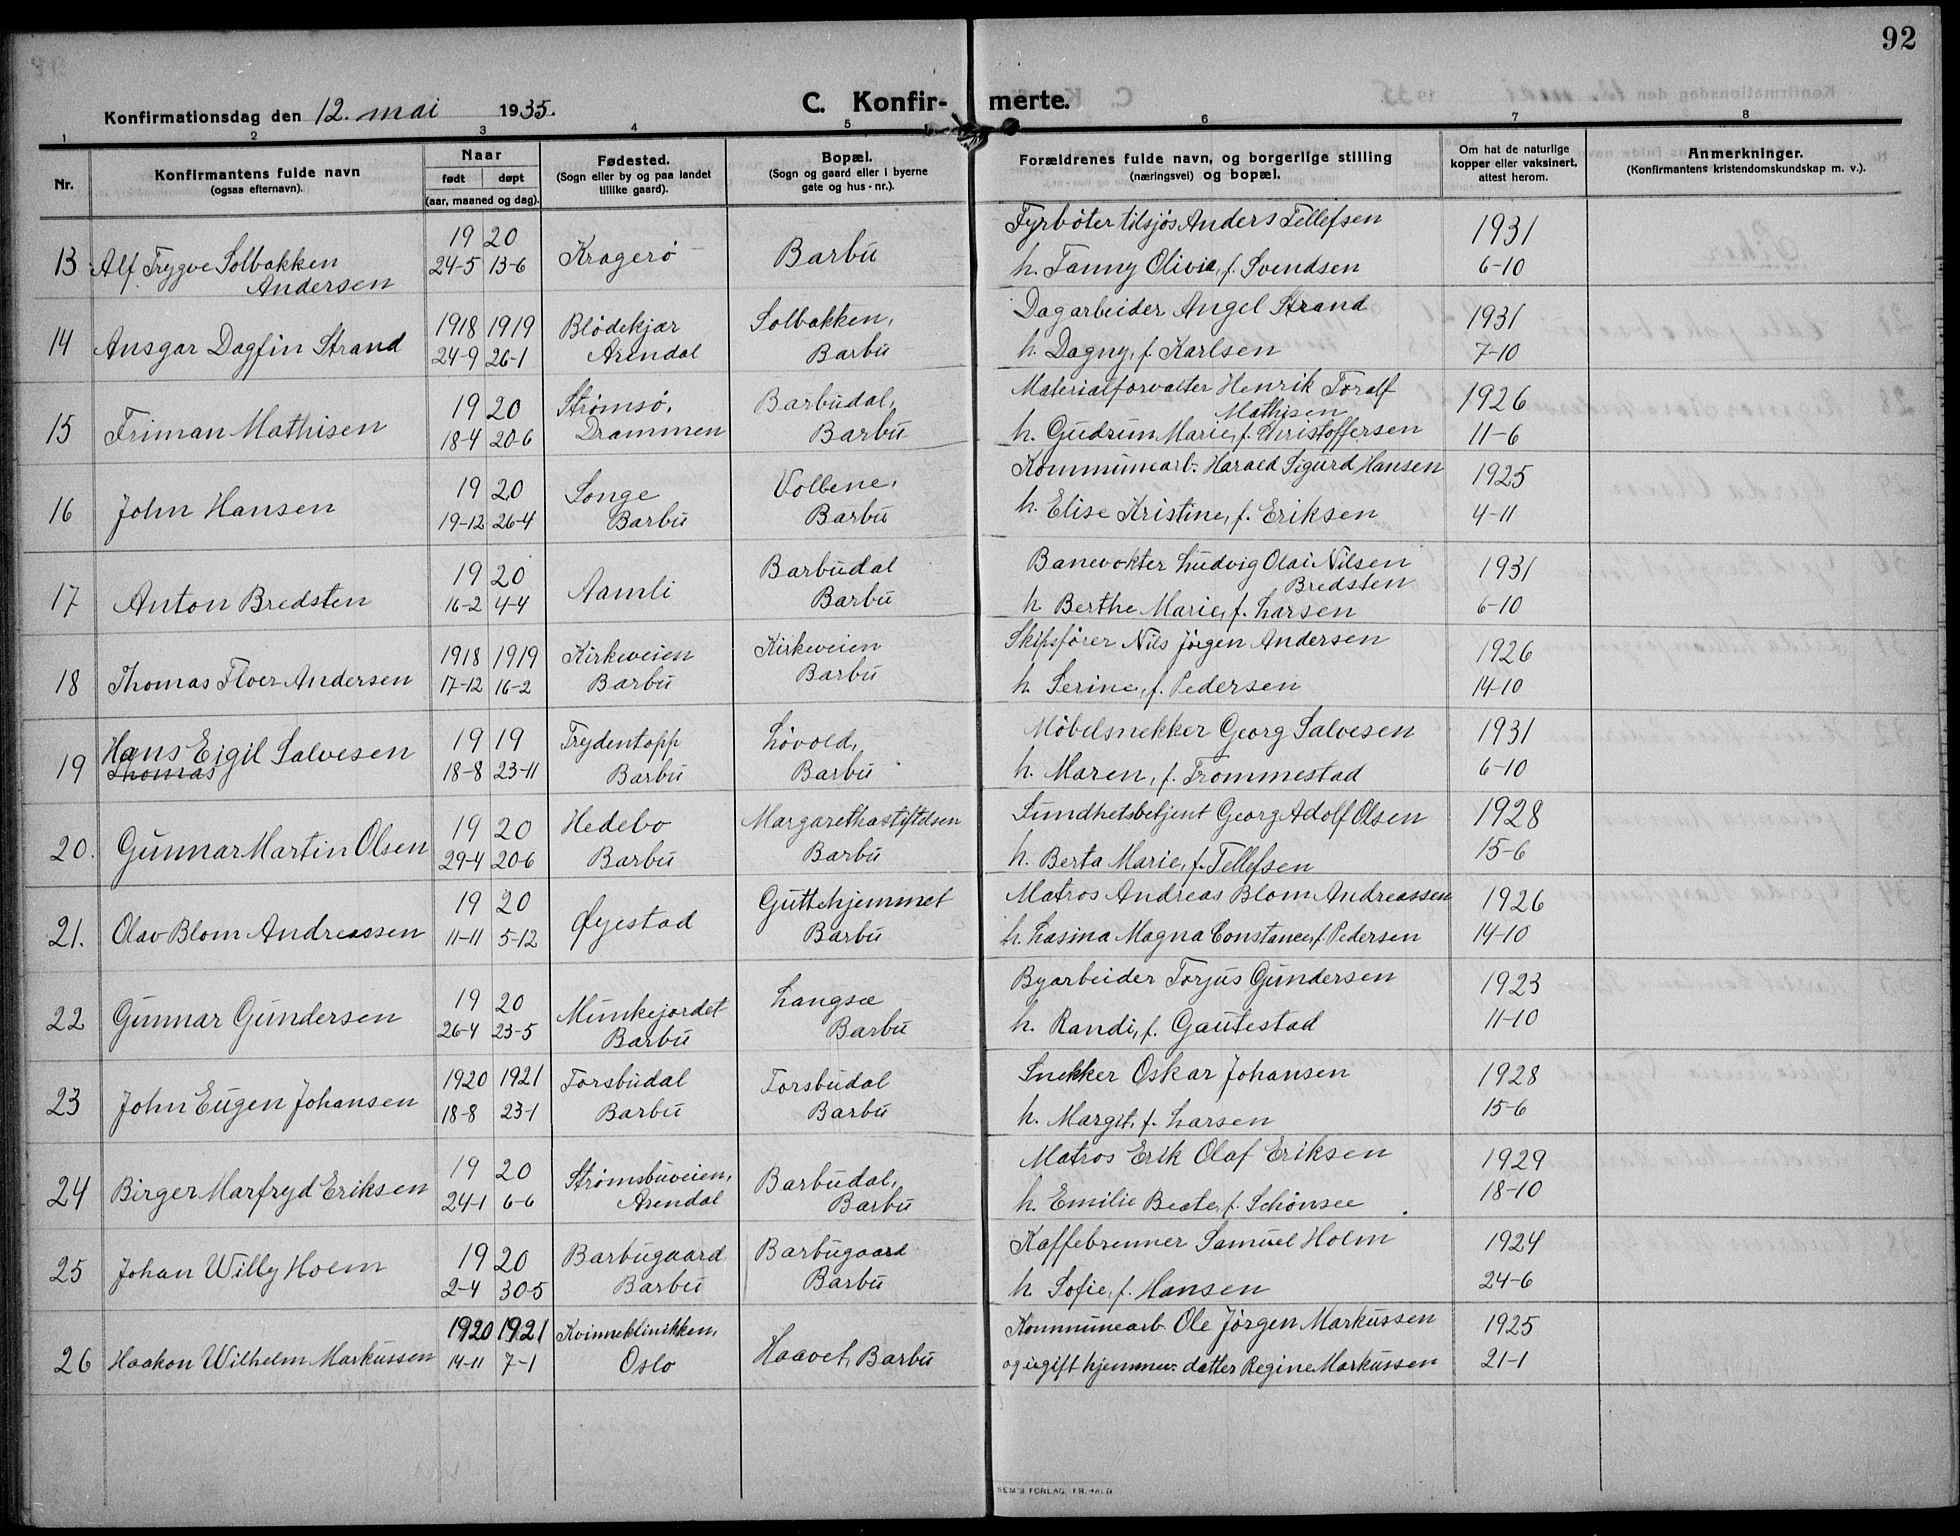 92
Konfirmationsdag den 12. mai 1935.
C. Konfir- merte.
1 2 3 4 5 6 7 8
Nr.
Konfirmantens fulde navn
(ogsaa efternavn).
Naar
født døpt
(aar, maaned og dag).
Fødested.
(Sogn eller by og paa landet
tillike gaard).
Bopæl.
(Sogn og gaard eller i byerne
gate og hus-nr.).
Forældrenes fulde navn, og borgerlige stilling
(næringsvei) og bopæl.
Om hat de naturlige
kopper eller vaksinert,
attest herom.
Anmerkninger.
(Konfirmantens kristendomskundskap m. v.).
13 Alf Trygve Solbakken
Andersen
19 20
24-5 13-6
Kragerø
Barbu
Fyrbøter tilsjøs Anders Tellefsen
h. Fanny Olivia, f. Svendsen
1931
6-10
14 Ansgar Dagfin Strand
1918 1919
24-9 26-1
Blødekjær
Arendal
Solbakken,
Barbu
Dagarbeider Angel Strand
h. Dagny, f. Karlsen
1931
7-10
15 Friman Mathisen
19 20
18-4 20-6
Strømsø,
Drammen
Barbudal,
Barbu
Materialforvalter Henrik Toralf
Mathisen
h. Gudrun Marie, f. Christoffersen
1926
11-6
16 John Hansen
19 20
19-12 26-4
Songe
Barbu
Vollene,
Barbu
Kommunearb. Harald Sigurd Hansen
h. Elise Kristine, f. Eriksen
1925
4-11
17 Anton Bredsten
19 20
16-2 4-4
Aamli
Barbudal
Barbu
Banevokter Ludvig Olai Nilsen
Bredsten
h Berthe Marie, f. Larsen
1931
6-10
18 Thomas Floer Andersen
1918 1919
17-12 16-2
Kirkeveien
Barbu
Kirkeveien
Barbu
Skipsfører Nils Jørgen Andersen
h. Serine, f. Pedersen
1926
14-10
19 Hans Eigil Salvesen
Thomas
19 19
18-8 23-11
Frydentopp
Barbu
Løvold,
Barbu
Møbelsnekker Georg Salvesen
h. Maren, f. Trommestad
1931
6-10
20. Gunnar Martin Olsen
19 20
29-4 20-6
Hedebo
Barbu
Margarethastiftelsen
Barbu
Sundhetsbetjent Georg Adolf Olsen
h. Berta Marie, f. Tellefsen
1928
15-6
21. Olav Blom Andreassen
19 20
11-11 5-12
Øyestad
Guttehjemmet
Barbu
Matros Andreas Blom Andreassen
h. Lasina Magna Constance, f. Pedersen
1926
14-10
22 Gunnar Gundersen
19 20
26-4 23-5
Munkejordet
Barbu
Langsæ
Barbu
Byarbeider Torjus Gundersen
h. Randi, f. Gautestad
1923
11-10
23 John Eugen Johansen
1920 1921
18-8 23-1
Forsbudal
Barbu
Forsbudal
Barbu
Snekker Oskar Johansen
h. Margit, f. Larsen
1928
15-6
24 Birger Marfryd Eriksen
19 20
24-1 6-6
Strømsbuveien,
Arendal
Barbudal,
Barbu
Matros Erik Olaf Eriksen
h. Emilie Beate, f. Schønsee
1929
18-10
25 Johan Willy Holm
19 20
2-4 30-5
Barbugaard
Barbu
Barbugaard
Barbu
Kaffebrenner Samuel Holm
h. Sofie, f. Hansen
1924
24-6
26 Haakon Wilhelm Markussen
1920 1921
14-11 7-1
Kvinneklinikken,
Oslo
Haavet, Barbu
Kommunearb. Ole Jørgen Markussen
og ugift hjemmev. datter Regine Markussen
1925
21-1
SEM'S FORLAG, FR.HALD